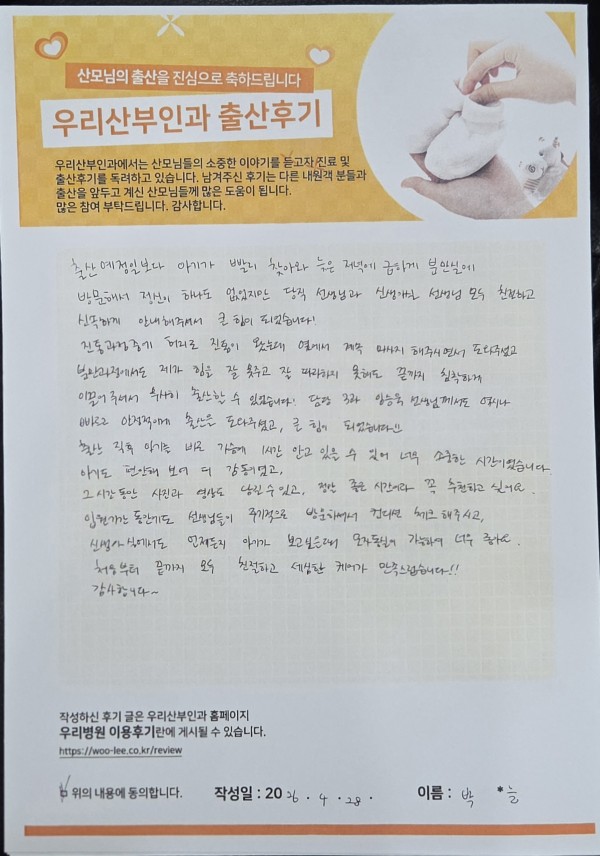 산모님의 출산을 진심으로 축하드립니다
우리산부인과 출산후기
우리산부인과에서는 산모님들의 소중한 이야기를 듣고자 진료 및
출산후기를 독려하고 있습니다. 남겨주신 후기는 다른 내원객 분들과
출산을 앞두고 계신 산모님들께 많은 도움이 됩니다.
많은 참여 부탁드립니다. 감사합니다.
출산 예정일보다 아기가 빨리 찾아와 늦은 저녁에 급하게 분만실에
방문해서 정신이 하나도 없었지만 당직 선생님과 신생아실 선생님 모두 친절하고
신속하게 안내해주셔서 큰 힘이 되었습니다!
진통과정중에 허리로 진통이 왔는데 옆에서 계속 마사지 해주시면서 도와주셨고
분만과정에서도 제가 힘을 잘 못주고 잘 따라하지 못해도 끝까지 침착하게
이끌어주셔서 무사히 출산할 수 있었습니다! 담당 3과 선생님께서도 역시나
빠르고 안정적이게 출산을 도와주셨고, 큰 힘이 되었습니다!!
출산 직후 아기는 바로 가슴에 1시간 안고 있을 수 있어 너무 소중한 시간이었습니다
아기도 편안해 보여 더 감동이었고,
그 시간동안 사진과 영상도 남길 수 있고, 정말 좋은 시간이라 꼭 추천하고 싶어요.
입원기간 동안에도 선생님들이 주기적으로 방문하셔서 컨디션 체크 해주시고,
신생아실에서도 언제든지 아기가 보고싶을때 모자동실이 가능하여 너무 좋아요.
처음부터 끝까지 모두 친절하고 세심한 케어가 만족스럽습니다!!
감사합니다~
작성하신 후기 글은 우리산부인과 홈페이지
우리병원 이용후기란에 게시될 수 있습니다.
https://woo-lee.co.kr/review
위의 내용에 동의합니다. 작성일 : 2026. 4. 28. 이름 : 박 *늘